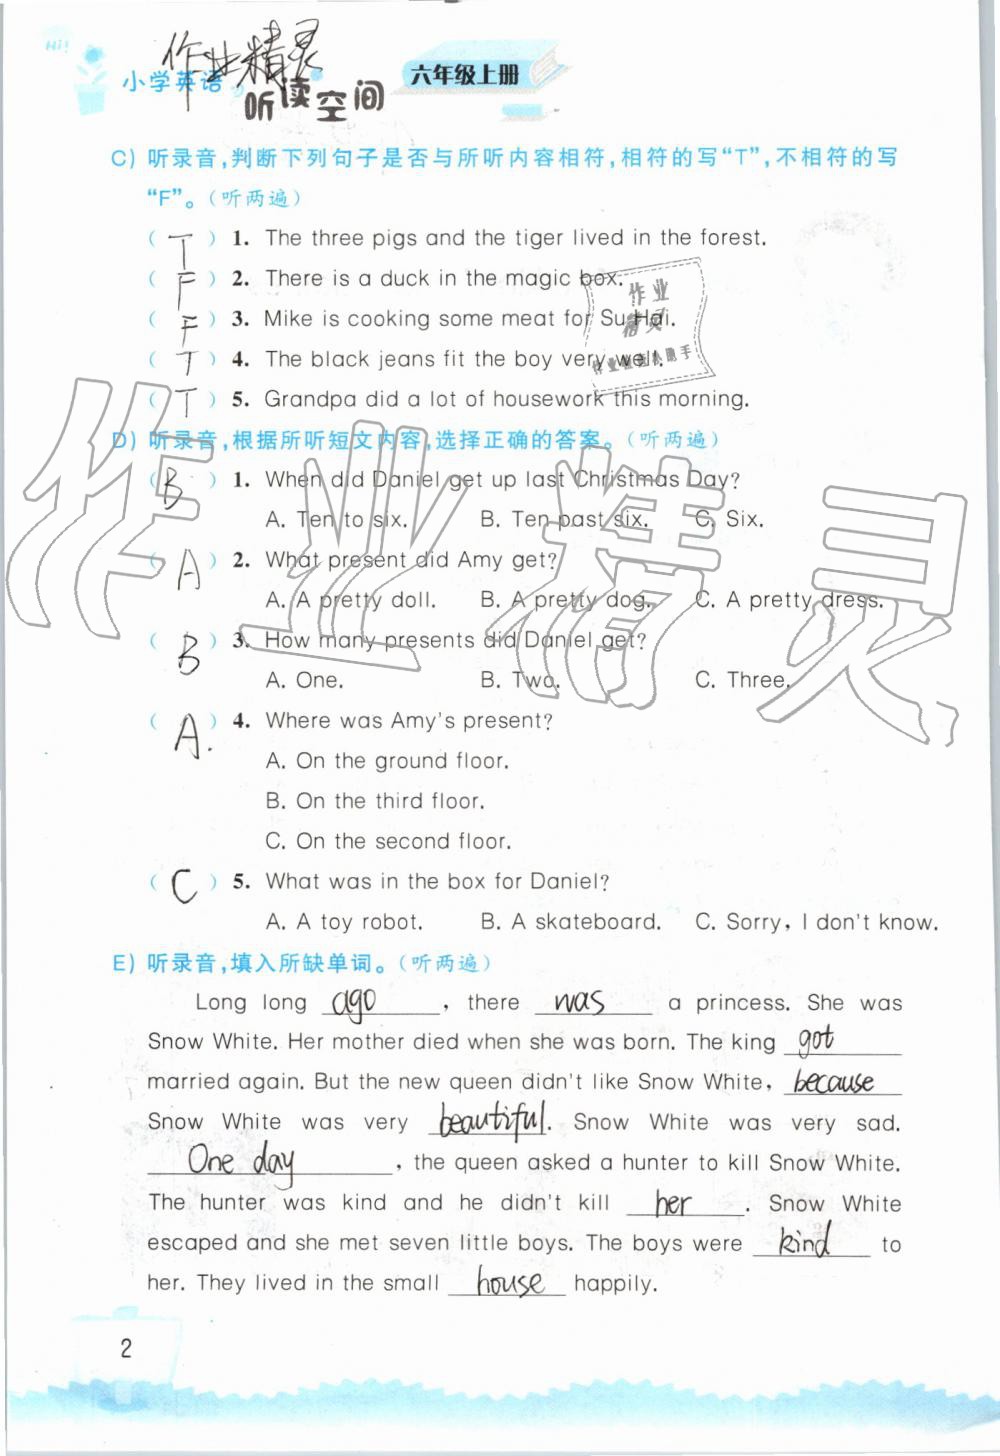 Hi!
作业精灵
小学英语 听读空间 六年级上册
C) 听录音,判断下列句子是否与所听内容相符,相符的写“T”,不相符的写
“F”。(听两遍)
( T ) 1. The three pigs and the tiger lived in the forest.
( F ) 2. There is a duck in the magic box.
( F ) 3. Mike is cooking some meat for Su Hai.
( T ) 4. The black jeans fit the boy very well.
( T ) 5. Grandpa did a lot of housework this morning.
作业
精灵
作业精灵
D) 听录音,根据所听短文内容,选择正确的答案。(听两遍)
( B ) 1. When did Daniel get up last Christmas Day?
A. Ten to six. B. Ten past six. C. Six.
( A ) 2. What present did Amy get?
A. A pretty doll. B. A pretty dog. C. A pretty dress.
( B ) 3. How many presents did Daniel get?
A. One. B. Two. C. Three.
( A. ) 4. Where was Amy's present?
A. On the ground floor.
B. On the third floor.
C. On the second floor.
( C ) 5. What was in the box for Daniel?
A. A toy robot. B. A skateboard. C. Sorry, I don't know.
E) 听录音,填入所缺单词。(听两遍)
Long long ago, there was a princess. She was
Snow White. Her mother died when she was born. The king got
married again. But the new queen didn't like Snow White, because
Snow White was very beautiful. Snow White was very sad.
One day, the queen asked a hunter to kill Snow White.
The hunter was kind and he didn't kill her. Snow White
escaped and she met seven little boys. The boys were kind to
her. They lived in the small house happily.
2